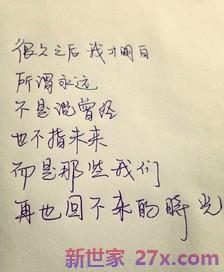 很久之后我才明白
所谓永远
不是说曾经
也不指未来
而是那些我们
再也回不来的時光
新世家 27x.com